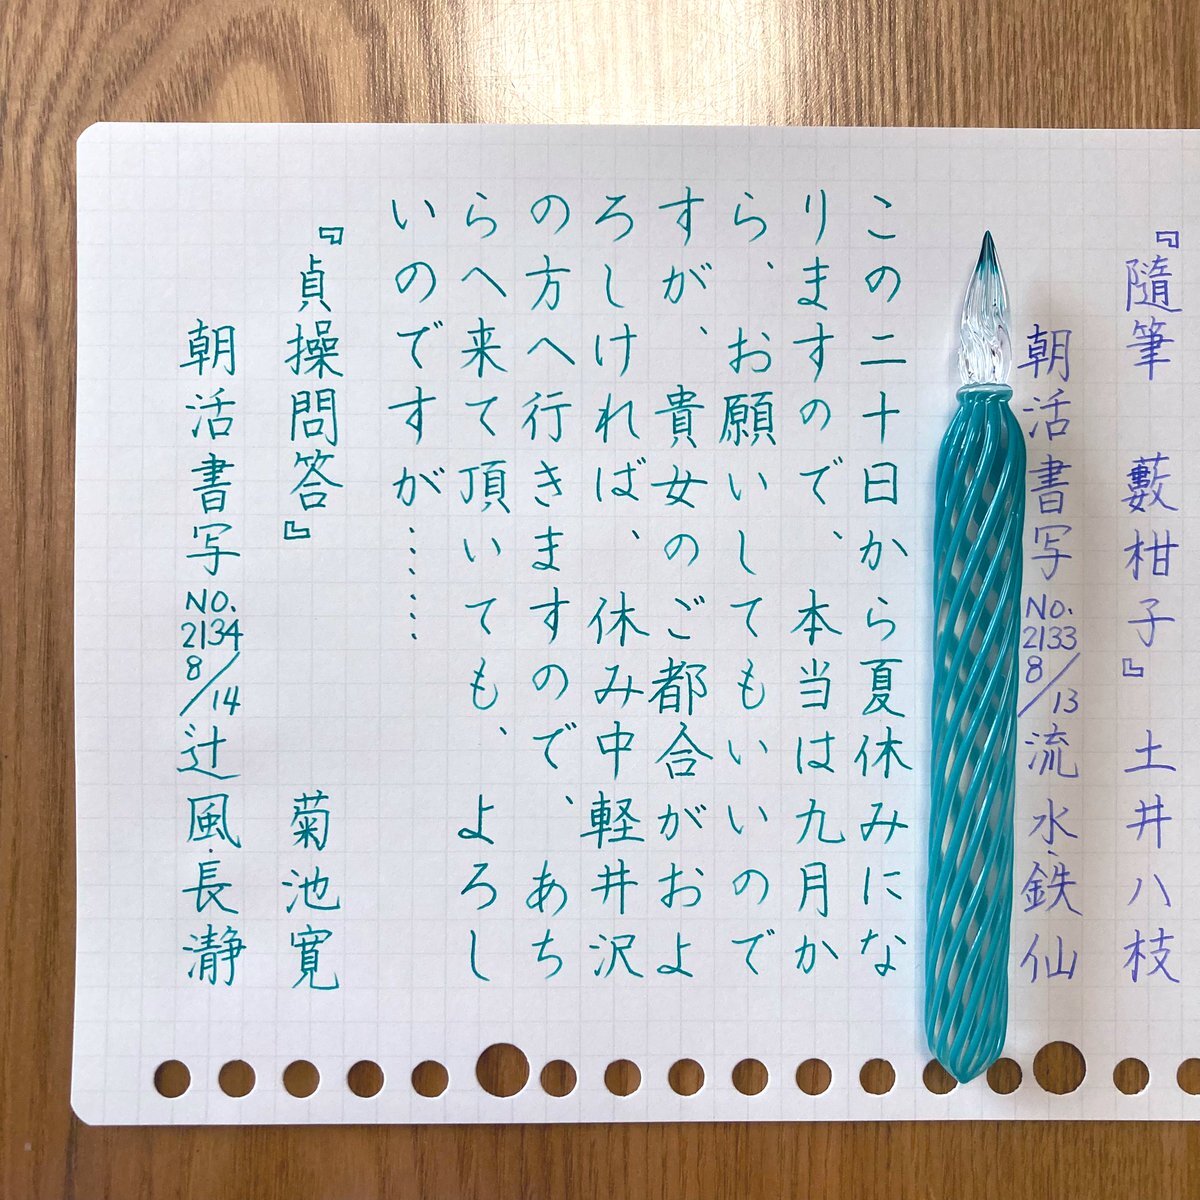 『隨筆 藪柑子』 土井八枝
朝活書写 NO. 2133 8/13 流水・鉄仙
この二十日から夏休みにな
りますので、本当は九月か
ら、お願いしてもいいので
すが、貴女のご都合がおよ
ろしければ、休み中軽井沢
の方へ行きますので、あち
らへ来て頂いても、よろし
いのですが……
『貞操問答』 菊池寛
朝活書写 NO. 2134 8/14 辻風・長瀞